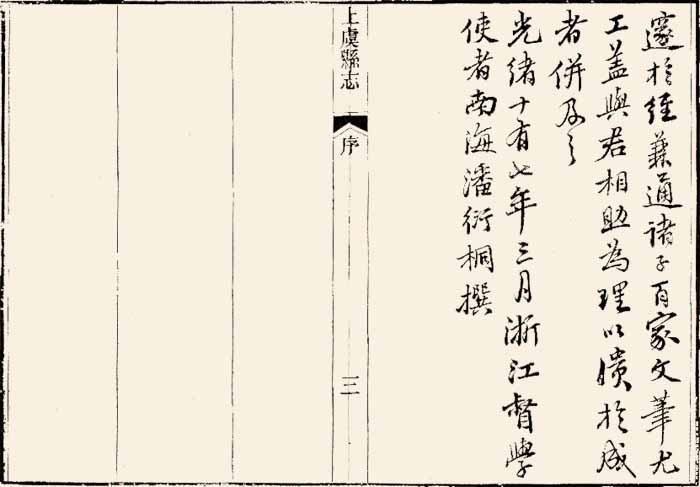 邃於經兼通諸子百家文筆尤
工蓋與君相助為理以潰於成
者併及之
光緒十有七年三月浙江督學
使者南海潘衍桐撰
上虞縣志
序
三